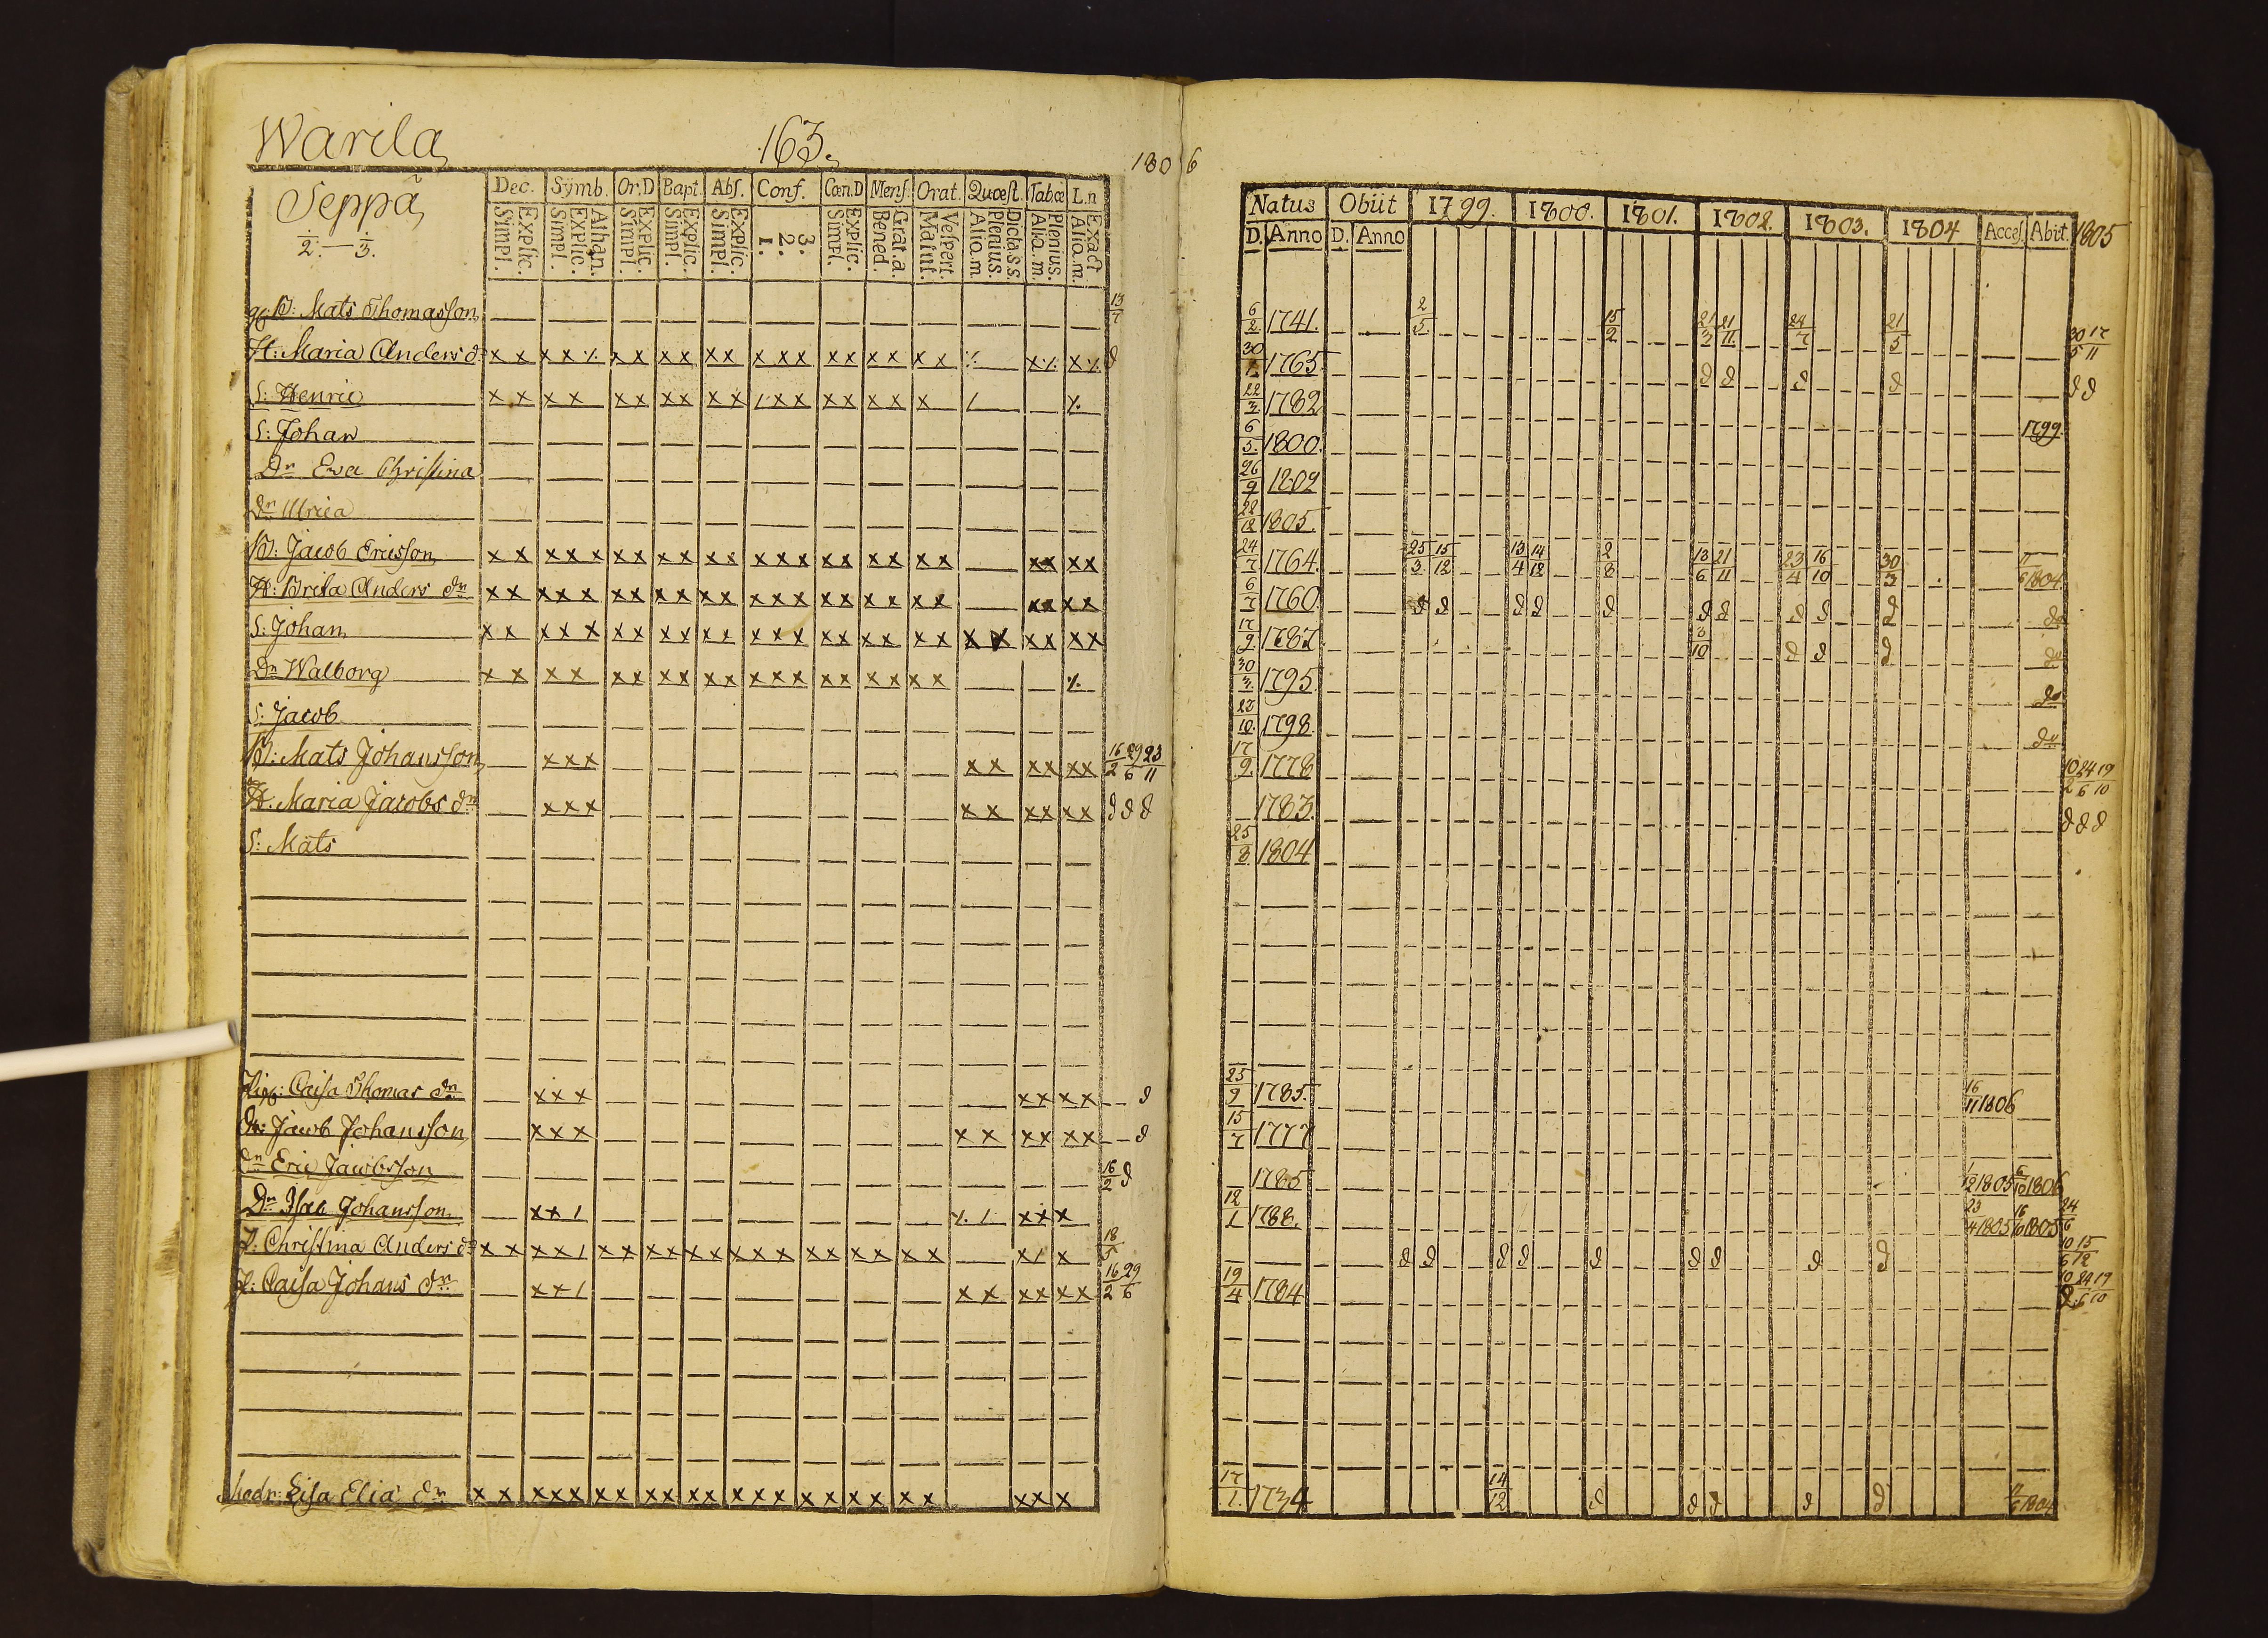 Warila
163.
1806
Seppä
2. — 3.
Dec. Symb. Or.D Bapt. Abs. Conf. Cœn.D Mens. Orat. Quæst. Tabæ L.n
Simpl. Explic. Simpl. Explic. Athan. Simpl. Explic. Simpl. Explic. Simpl. Explic. 1. 2. 3. Simpl. Explic. Bened. Grat.a. Matut. Vespert. Aliq.m. Plenius. Dictas.s. Aliq.m. Plenius. Aliq.m. Exact
Natus Obiit 1799. 1800. 1801. 1802. 1803. 1804 Acces. Abit. 1805
D. Anno D. Anno
B: Mats Thomasson 13/7 6/2 1741. 2/5 15/2 21/3 21/11 24/7 21/5 30/5 17/11
H: Maria Anders dr x x x x ٪ x x x x x x x x x x x x x x x 30 1765
S: Henric x x x x x x x x x x / x x x x x x x 22/3 1782
S: Johan 6/5 1800. 1799.
Dr Eva Christina 26/9 1802
Dr Ulrica 28/12 1805.
B: Jacob Ericsson x x x x x x x x x x x x x x x x x x x x x x x 24/7 1764. 25/3 15/12 13/4 14/12 2/8 13/6 21/11 23/4 16/10 30/3 1804.
H: Brita Anders dr x x x x x x x x x x x x x x x x x x x x x x x 6/7 1760
S: Johan x x x x x x x x x x x x x x x x x x x x x x x x x 17/9 1787 8/10
Dr Walborg x x x x x x x x x x x x x x x x x x x 30/3 1795.
S: Jacob 1798.
B: Mats Johansson x x x x x x x x x 16/2 29/6 23/11 17/9 1778 10/2 24/6 19/10
H: Maria Jacobs dr x x x x x x x x x 1783.
S: Mats 25/8 1804
Caisa Thomas dr x x x x x x x 25/9 1785. 16/11 1806
Jacob Johansson x x x x x x x x x 15/7 1777
Eric Jacobsson 16/2 1785 1805 1806
Dr Isac Johansson x x / x x x 12/1 1788. 23/4 1805 16/6 1805 24/6
P: Christina Anders dr x x x x / x x x x x x x x x x x x x x x x / x 18/5 10/6 15/12
P: Caisa Johans dr x x / x x x x x x 16/2 29/6 19/4 1784 24/6 19/10
Lisa Elia dr x x x x x x x x x x x x x x x x x x x x x x x 1734 14/12 1804